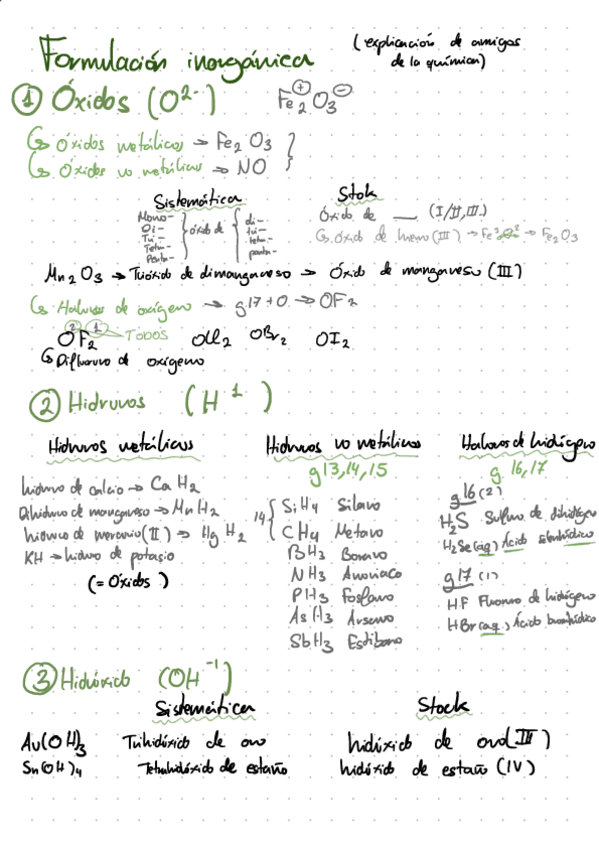 Formulación inorgánica (explicación de amigos de la química)
① Óxidos (O²⁻) Fe₂⊕O₃⊖
↳ Óxidos metálicos → Fe₂O₃
↳ Óxidos no metálicos → NO
Sistemática Stok
Mono- Di- Tri- Tetra- Penta- } óxido de { di- tri- tetra- penta-
Óxido de ___ (I/II, III.)
↳ Óxido de hierro (III) → Fe³O² → Fe₂O₃
Mn₂O₃ → Trióxido de dimanganeso → Óxido de manganeso (III)
↳ Haluros de oxígeno → g17 + O → OF₂
2 1 Todos
OF₂ OCl₂ OBr₂ OI₂
↳ Difluoruro de oxígeno
② Hidruros (H¹)
Hidruros metálicos
hidruro de calcio → CaH₂
Dihidruro de manganeso → MnH₂
hidruro de mercurio (II) → HgH₂
KH → hidruro de potasio
(= Óxidos)
Hidruros no metálicos
g13, 14, 15
14 { SiH₄ Silano
CH₄ Metano
BH₃ Borano
NH₃ Amoniaco
PH₃ Fosfano
AsH₃ Arsano
SbH₃ Estibano
Haluros de hidrógeno
g. 16, 17
g16 (2)
H₂S Sulfuro de dihidrógeno
H₂Se (aq) Ácido selenhídrico
g17 (1)
HF Fluoruro de hidrógeno
HBr (aq.) Ácido bromhídrico
③ Hidróxido (OH⁻¹)
Sistemática Stock
Au(OH)₃ Trihidróxido de oro hidróxido de oro (III)
Sn(OH)₄ Tetrahidróxido de estaño hidróxido de estaño (IV)